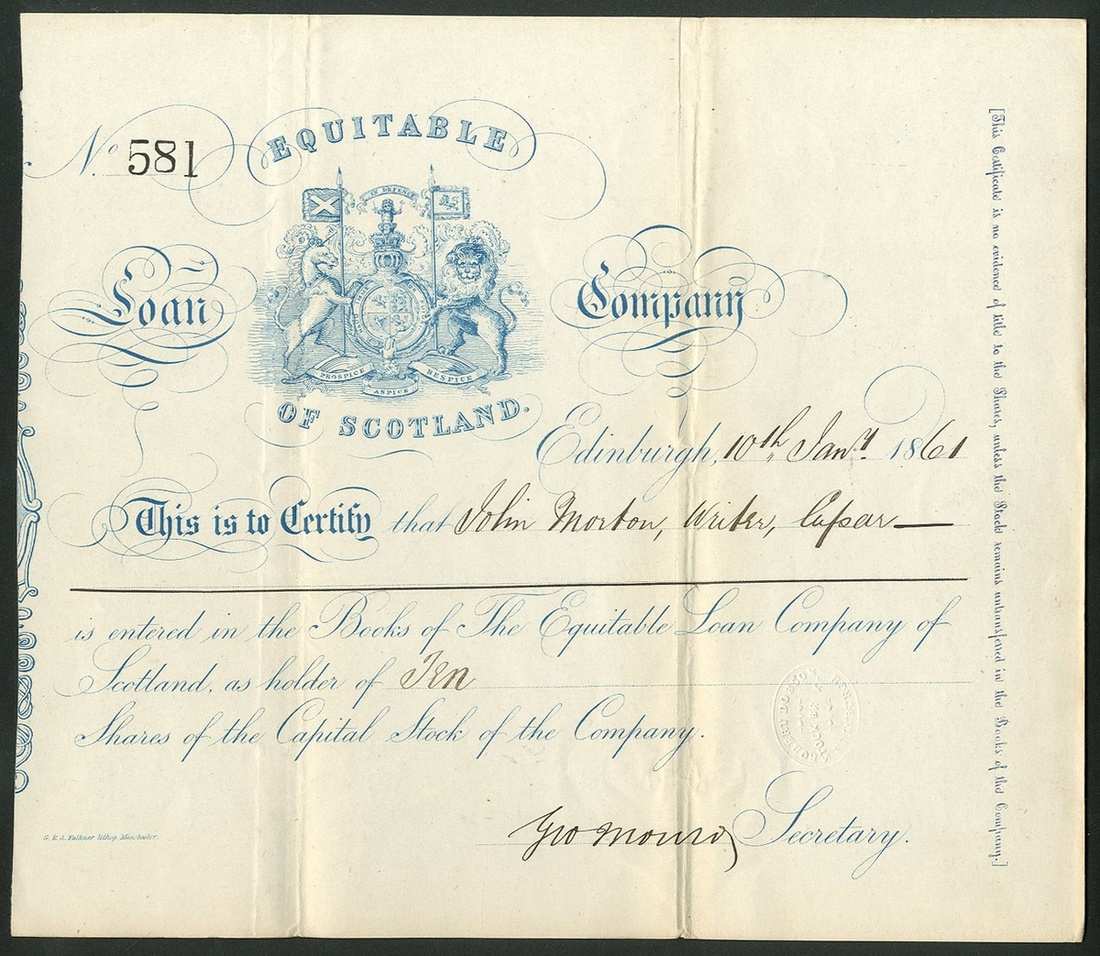 No 581
EQUITABLE
IN DEFENCE
Loan Company
PROSPICE RESPICE
ASPICE
OF SCOTLAND.
Edinburgh, 10th Jany 1861
This is to Certify that John Morton, Writer, Cupar
is entered in the Books of The Equitable Loan Company of
Scotland, as holder of Ten
Shares of the Capital Stock of the Company.
Geo Monro Secretary.
G. & A. Falkner lithog. Manchester.
[This Certificate is no evidence of title to the Shares, unless the Stock remains untransferred in the Books of the Company.]